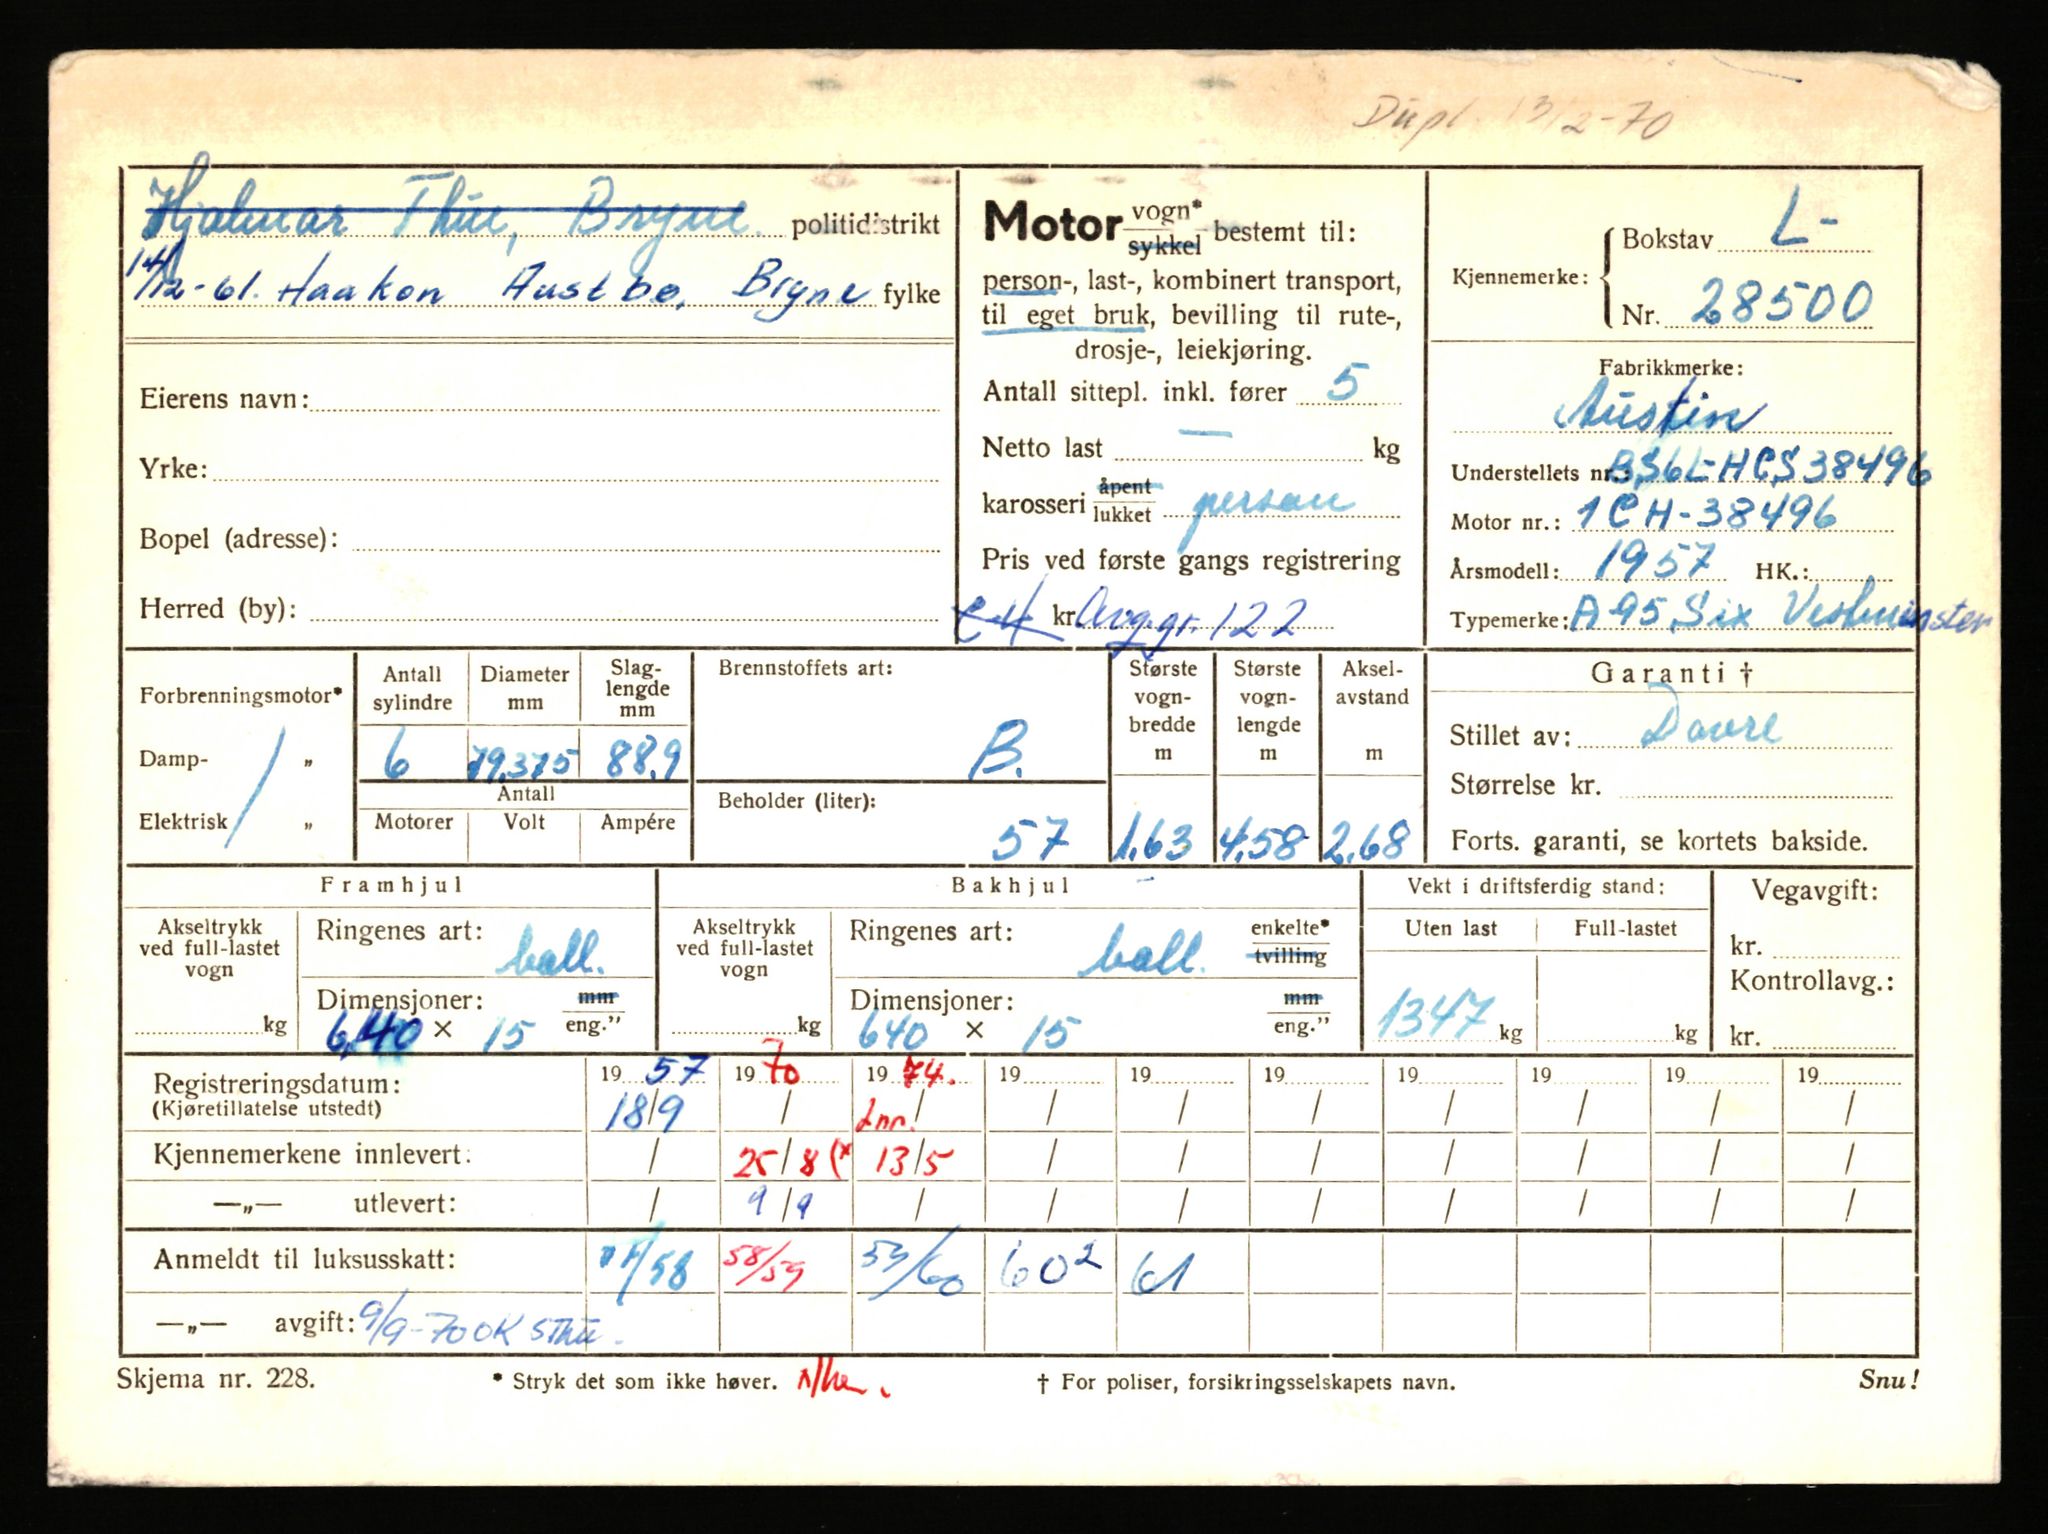 Dupl. 13/2-70
Hjalmar Thue, Bryne. politidistrikt
14/12-61. Haakon Austbø, Bryne fylke
Eierens navn:
Yrke:
Bopel (adresse):
Herred (by):
Motor vogn* sykkel bestemt til:
person-, last-, kombinert transport,
til eget bruk, bevilling til rute-,
drosje-, leiekjøring.
Antall sittepl. inkl. fører 5
Netto last — kg
karosseri åpent lukket person
Pris ved første gangs registrering
kr Avg.gr. 122
Kjennemerke: Bokstav L-
Nr. 28500
Fabrikkmerke:
Austin
Understellets nr.: BS6L-HCS38496
Motor nr.: 1CH-38496
Årsmodell: 1957 HK.:
Typemerke: A95 Six Vestminster
Forbrenningsmotor*
Damp- „
Elektrisk „
Antall sylindre Diameter mm Slag-lengde mm
6 79,375 88,9
Antall
Motorer Volt Ampére
Brennstoffets art:
B.
Beholder (liter):
57
Største vogn-bredde m Største vogn-lengde m Aksel-avstand m
1,63 4,58 2,68
Garanti †
Stillet av: Dovre
Størrelse kr.
Forts. garanti, se kortets bakside.
Framhjul
Akseltrykk ved full-lastet vogn
kg
Ringenes art: ball.
Dimensjoner: mm
6,40 × 15 eng.”
Bakhjul
Akseltrykk ved full-lastet vogn
kg
Ringenes art: ball. enkelte* tvilling
Dimensjoner: mm
640 × 15 eng.”
Vekt i driftsferdig stand:
Uten last Full-lastet
1347 kg kg
Vegavgift:
kr.
Kontrollavg.:
kr.
Registreringsdatum: 19 57 19 70 19 74. 19 19 19 19 19 19 19
(Kjøretillatelse utstedt) 18/9 / Inn. / / / / / / / /
Kjennemerkene innlevert: / 25/8 (* 13/5 / / / / / / /
—„— utlevert: / 9/9 / / / / / / / /
Anmeldt til luksusskatt: /58 58/59 59/60 60² 61
—„— avgift: 9/9-70 OK SThu.
Skjema nr. 228.
* Stryk det som ikke høver.
† For poliser, forsikringsselskapets navn.
Snu!